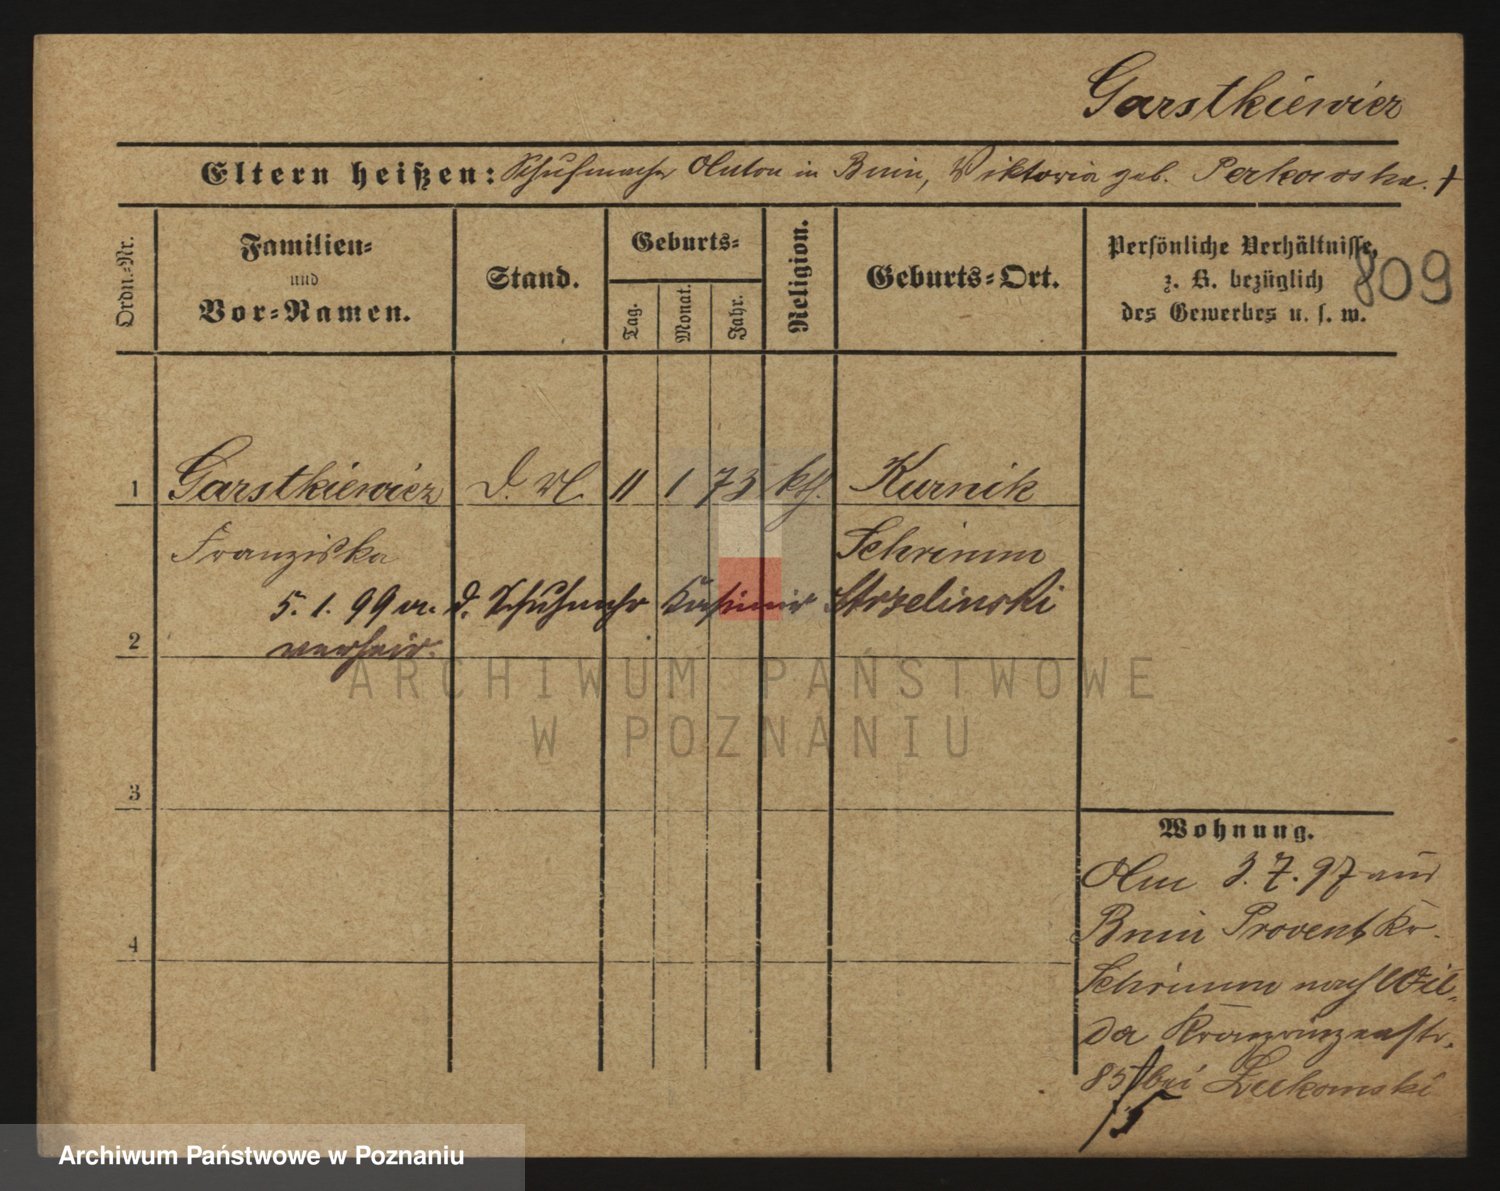 Garstkiewicz
Eltern heißen: Schuhmacher Anton in Bnin, Viktoria geb. Perkowska. +
Ordn.-Nr.
Familien-
und
Vor-Namen.
Stand.
Geburts-
Tag.
Monat.
Jahr.
Religion.
Geburts-Ort.
Persönliche Verhältnisse,
z. B. bezüglich
des Gewerbes u. s. w.
809
1 Garstkiewicz d. 11 1 73 kth. Kurnik
Franziska Schrimm
5. 1. 99 m. d. Schuhmchr Kasimir Strzelinski
2 verheir.
3
4
Wohnung.
Am 3. 7. 97 aus
Bnin Provent Kr.
Schrimm nach Wil-
da Kronprinzenstr.
85 bei Lukomski
/5
ARCHIWUM PAŃSTWOWE
W POZNANIU
Archiwum Państwowe w Poznaniu